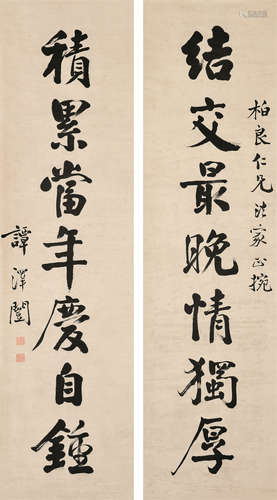 柏良仁兄法家正腕
結交最晚情獨厚
積累當年慶自鍾
譚澤闓